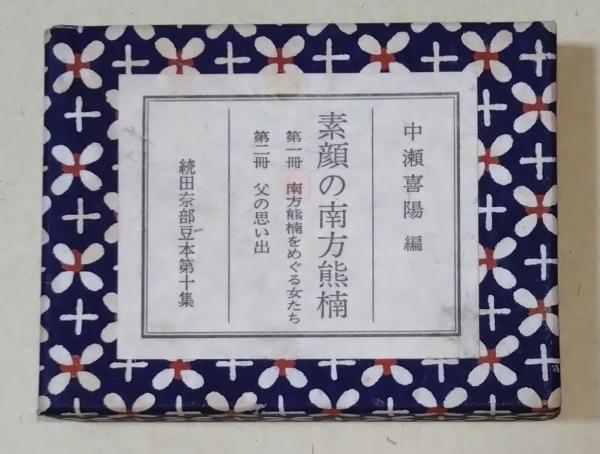 中瀬喜陽 編
素顔の南方熊楠
第一冊 南方熊楠をめぐる女たち
第二冊 父の思い出
続田奈部豆本第十集